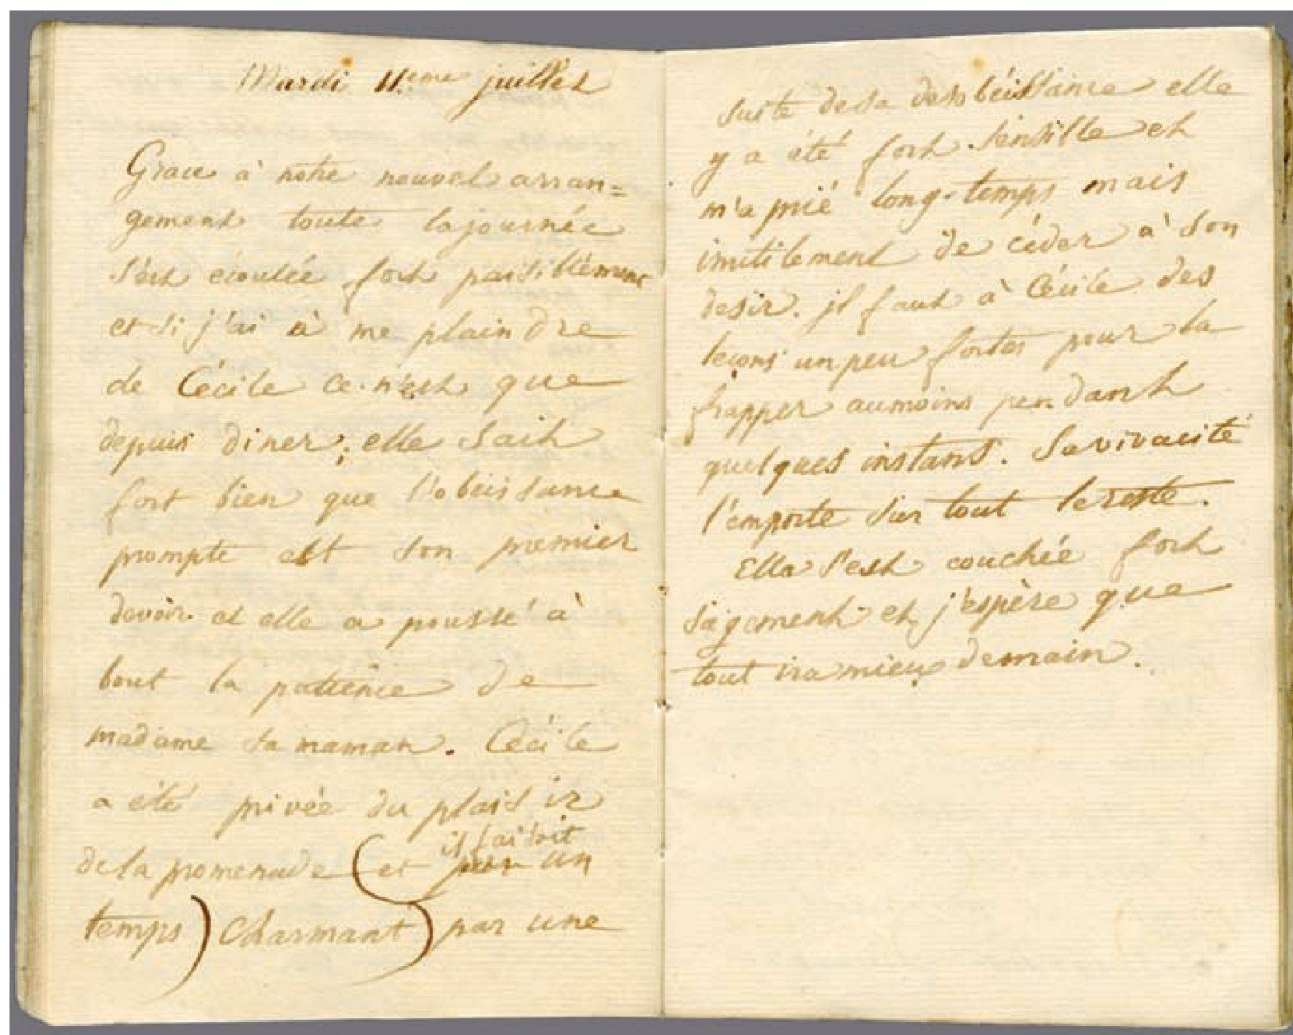 Mardi 11.eme juillet
Grace à notre nouvel arran=
gement toute la journée
s'est écoulée fort paisiblement
et si j'ai à me plaindre
de Cécile ce n'est que
depuis diner; elle sait
fort bien que l'obeissance
prompte est son premier
devoir et elle a poussé à
bout la patience de
madame sa maman. Cécile
a été privée du plaisir
il faisoit
de la promenade (et par un
temps) charmant) par une
suite de sa desobéissance elle
y a été fort sensible et
m'a prié long-temps mais
inutilement de céder à son
desir. il faut à Cécile des
leçons un peu fortes pour la
frapper aumoins pendant
quelques instans. Sa vivacité
l'emporte sur tout le reste.
Elle s'est couchée fort
sagement et j'espère que
tout ira mieux demain.